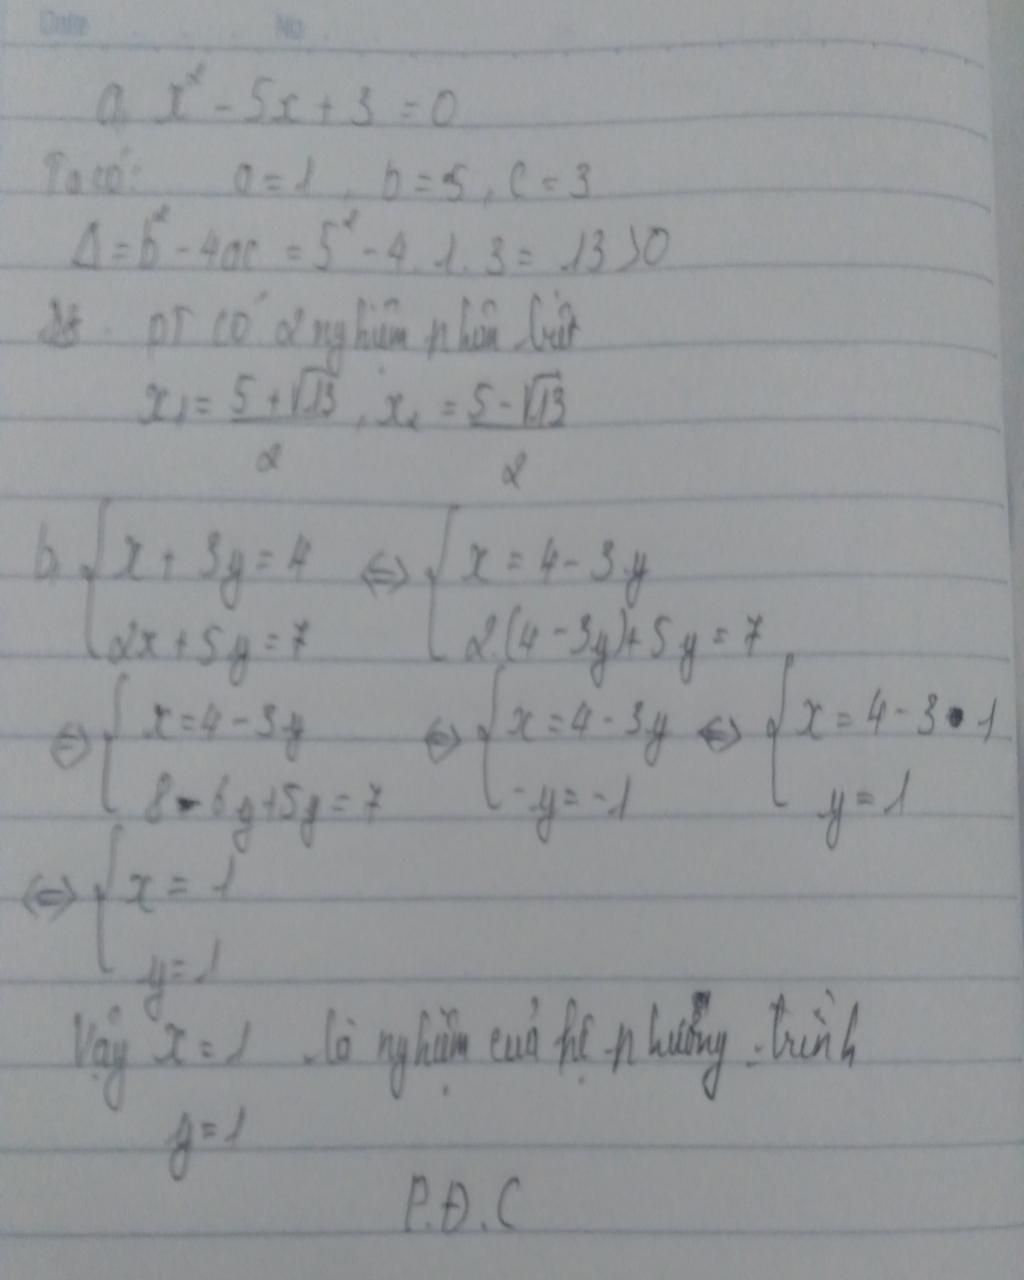 Date No
a, x² - 5x + 3 = 0
Ta có: a = 1, b = 5, c = 3
Δ = b² - 4ac = 5² - 4.1.3 = 13 > 0
PT có 2 nghiệm phân biệt
x₁ = (5 + √13)/2, x₂ = (5 - √13)/2
b, { x + 3y = 4 ⇔ { x = 4 - 3y
2x + 5y = 7 2.(4 - 3y) + 5y = 7
⇔ { x = 4 - 3y ⇔ { x = 4 - 3y ⇔ { x = 4 - 3 . 1
8 - 6y + 5y = 7 -y = -1 y = 1
⇔ { x = 1
y = 1
Vậy x = 1 là nghiệm của hệ phương trình
y = 1
P.Đ.C